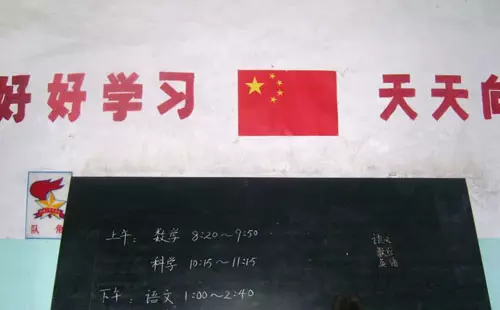 好好学习 天天向
队角
上午: 数学 8:20～9:50
科学 10:15～11:15
下午: 语文 1:00～2:40
语文
数学
英语